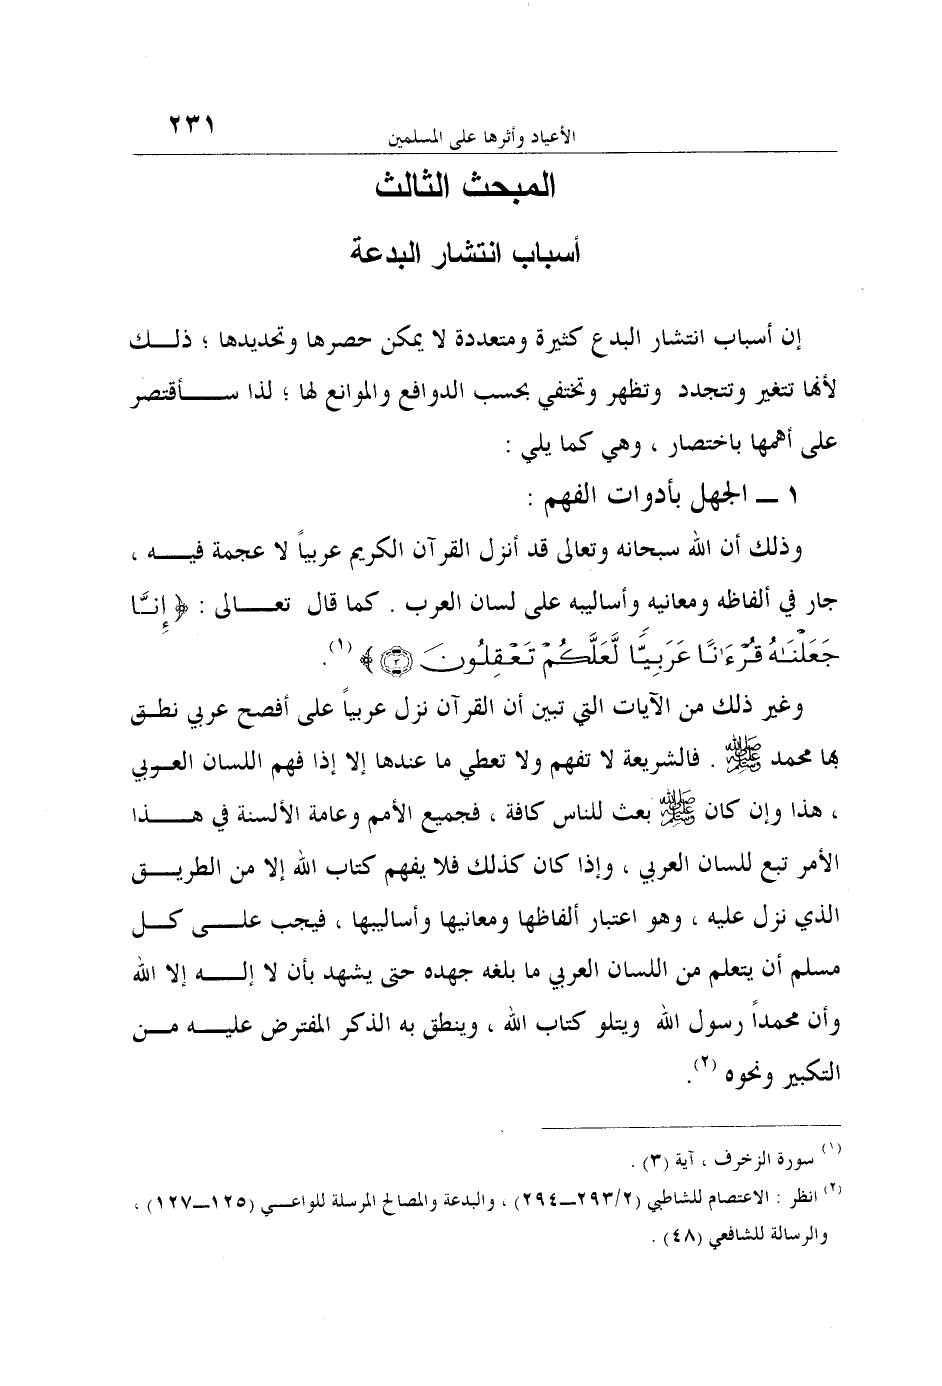 الأعياد وأثرها على المسلمين ٢٣١
المبحث الثالث
أسباب انتشار البدعة
إن أسباب انتشار البدع كثيرة ومتعددة لا يمكن حصرها وتحديدها ؛ ذلك
لأنها تتغير وتتجدد وتظهر وتختفي بحسب الدوافع والموانع لها ؛ لذا سأقتصر
على أهمها باختصار ، وهي كما يلي :
١ ــ الجهل بأدوات الفهم :
وذلك أن الله سبحانه وتعالى قد أنزل القرآن الكريم عربياً لا عجمة فيه ،
جار في ألفاظه ومعانيه وأساليبه على لسان العرب . كما قال تعالى : ﴿ إِنَّا
جَعَلْنَٰهُ قُرْءَٰنًا عَرَبِيًّا لَّعَلَّكُمْ تَعْقِلُونَ ٣ ﴾ (١).
وغير ذلك من الآيات التي تبين أن القرآن نزل عربياً على أفصح عربي نطق
بها محمد ﷺ . فالشريعة لا تفهم ولا تعطي ما عندها إلا إذا فهم اللسان العربي
، هذا وإن كان ﷺ بعث للناس كافة ، فجميع الأمم وعامة الألسنة في هذا
الأمر تبع للسان العربي ، وإذا كان كذلك فلا يفهم كتاب الله إلا من الطريق
الذي نزل عليه ، وهو اعتبار ألفاظها ومعانيها وأساليبها ، فيجب على كل
مسلم أن يتعلم من اللسان العربي ما بلغه جهده حتى يشهد بأن لا إله إلا الله
وأن محمداً رسول الله ويتلو كتاب الله ، وينطق به الذكر المفترض عليه من
التكبير ونحوه (٢).
(١) سورة الزخرف ، آية (٣) .
(٢) انظر : الاعتصام للشاطبي (٢/٢٩٣ــ٢٩٤) ، والبدعة والمصالح المرسلة للواعي (١٢٥ــ١٢٧) ،
والرسالة للشافعي (٤٨) .